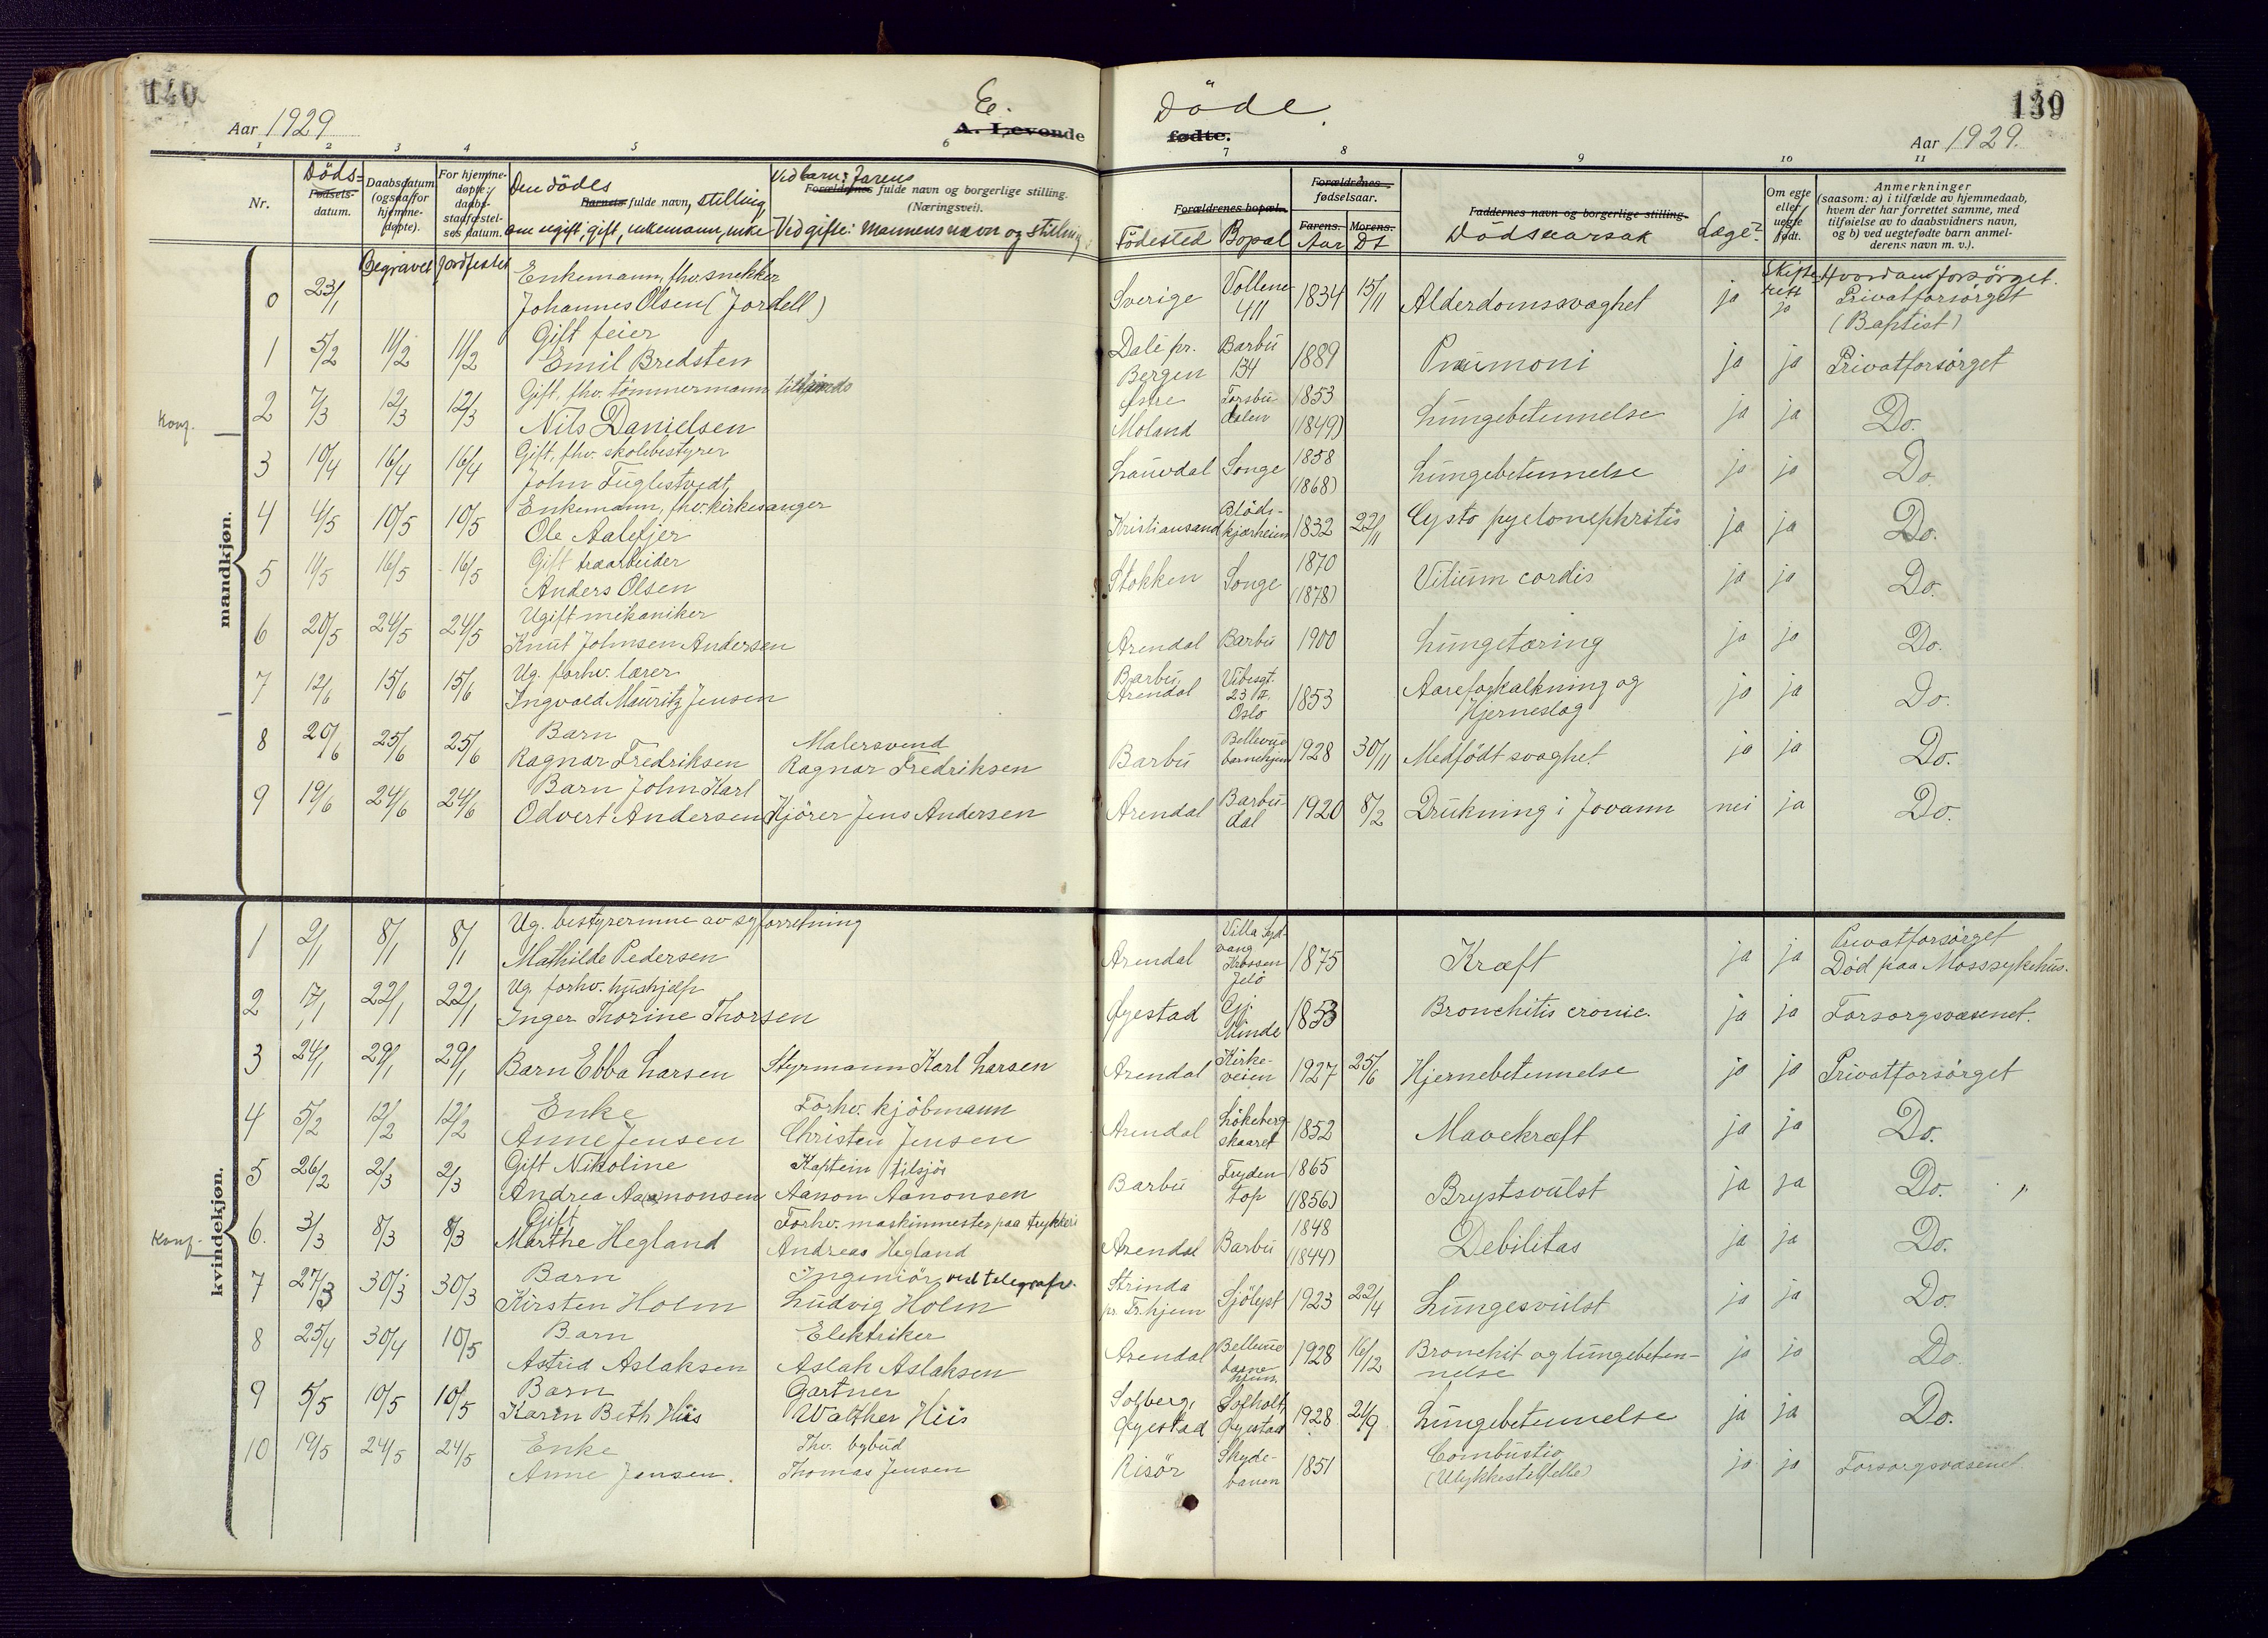 140
Aar 1929
E.
A. Levende
Döde.
fødte.
139
Aar 1929.
1 2 3 4 5 6 7 8 9 10 11
Nr.
Döds-
Fødsels-
datum.
Daabsdatum
(ogsaa for
hjemme-
døpte).
Begravet
For hjemme-
døpte:
daabs-
stadfæstel-
ses datum.
Jordfestet
Den dödes
Barnets fulde navn, stilling,
om ugift, gift, enkemann, enke
Ved barn: Farens
Forældrenes fulde navn og borgerlige stilling.
(Næringsvei).
Ved gifte: Mannens navn og stilling
Forældrenes bopæl.
Födested Bopæl
Forældrenes
fødselsaar.
Farens. Morens.
Aar Dt
Faddernes navn og borgerlige stilling.
Dödsaarsak
Læge?
Om egte
eller
uegte
født.
Skifte-
rett
Anmerkninger
(saasom: a) i tilfælde av hjemmedaab,
hvem der har forrettet samme, med
tilføielse av to daabsvidners navn,
og b) ved uegtefødte barn anmel-
derens navn m. v.).
Hvordan forsörget.
mandkjøn.
0 23/1 Enkemann, fhv. snekker Johannes Olsen (Jordell) Sverige Vollene 411 1834 15/11 Alderdomssvaghet ja ja Privatforsörget (Baptist)
1 5/2 11/2 11/2 Gift feier Emil Bredsten Dale pr. Bergen Barbu 134 1889 Pneumoni ja ja Privatforsörget
Konf.
2 7/3 12/3 12/3 Gift, fhv. tömmermann tilsjös Nils Danielsen Østre Moland Torsbudalen 1853 (1849) Lungebetennelse ja ja Do.
3 10/4 16/4 16/4 Gift, fhv. skolebestyrer John Fuglestvedt Lauvdal Songe 1858 (1868) Lungebetennelse ja ja Do.
4 4/5 10/5 10/5 Enkemann, fhv. kirkesanger Ole Aalefjer Kristiansand Blödekjærheim 1832 22/11 Cysto pyelonephritis ja ja Do.
5 11/5 16/5 16/5 Gift træarbeider Anders Olsen Stokken Songe 1870 (1878) Vitium cordis ja ja Do.
6 20/5 24/5 24/5 Ugift mekaniker Knut Johnsen Andersen Arendal Barbu 1900 Lungetæring ja ja Do.
7 12/6 15/6 15/6 Ug. forhv. lærer Ingvald Mauritz Jensen Barbu, Arendal Vibesgt. 23 II Oslo 1853 Aareforkalkning og Hjerneslag ja ja Do.
8 20/6 25/6 25/6 Barn Ragnar Fredriksen Malersvend Ragnar Fredriksen Barbu Bellevue barnehjem 1928 30/11 Medfödt svaghet ja ja Do.
9 19/6 24/6 24/6 Barn John Karl Odvert Andersen Kjörer Jens Andersen Arendal Barbudal 1920 8/2 Drukning i Jovann nei ja Do.
kvindekjøn.
1 2/1 8/1 8/1 Ug. bestyrerinne av syforretning Mathilde Pedersen Arendal Villa Sydvang Jelö 1875 Kræft ja ja Privatforsörget Död paa Moss sykehus.
2 17/1 22/1 22/1 Ug. forhv. hushjelp Inger Thorine Thorsen Øyestad Gj. Minde 1853 Bronchitis cronic. ja ja Forsorgsvæsenet.
3 24/1 29/1 29/1 Barn Ebba Larsen Styrmann Karl Larsen Arendal Kirkeveien 1927 25/6 Hjernebetennelse ja ja Privatforsörget
4 5/2 12/2 12/2 Enke Anne Jensen Forhv. kjöbmann Christen Jensen Arendal Lökebergskaaret 1852 Mavekræft ja ja Do.
5 26/2 2/3 2/3 Gift Nikoline Andrea Aanonsen Kaptein tilsjös Aanon Aanonsen Barbu Frydentop 1865 (1856) Brystsvulst ja ja Do. "
Konf.
6. 3/3 8/3 8/3 Gift Marthe Hegland Forhv. maskinmester paa trykkeri Andreas Hegland Arendal Barbu 1848 (1844) Debilitas ja ja Do.
7 27/3 30/3 30/3 Barn Kirsten Holm Ingeniör ved telegrafv. Ludvig Holm Strinda pr. Tr.hjem Sjölyst 1923 22/4 Lungesvulst ja ja Do.
8 25/4 30/4 10/5 Barn Astrid Aslaksen Elektriker Aslak Aslaksen Arendal Bellevue barnehjem 1928 16/12 Bronchit og lungebetennelse ja ja Do.
9 5/5 10/5 10/5 Barn Karin Beth Hiis Gartner Walther Hiis Solberg, Øyestad Solholt Øyestad 1928 21/9 Lungebetennelse ja ja Do.
10 19/5 24/5 24/5 Enke Anne Jensen. Fhv. bybud Thomas Jensen Risör Skydebanen 1851 Combustio (Ulykkestilfelle) ja ja Forsorgsvæsenet